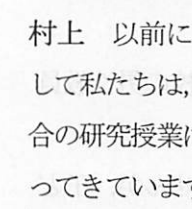 村上　以前に
して私たちは,
合の研究授業に
ってきています